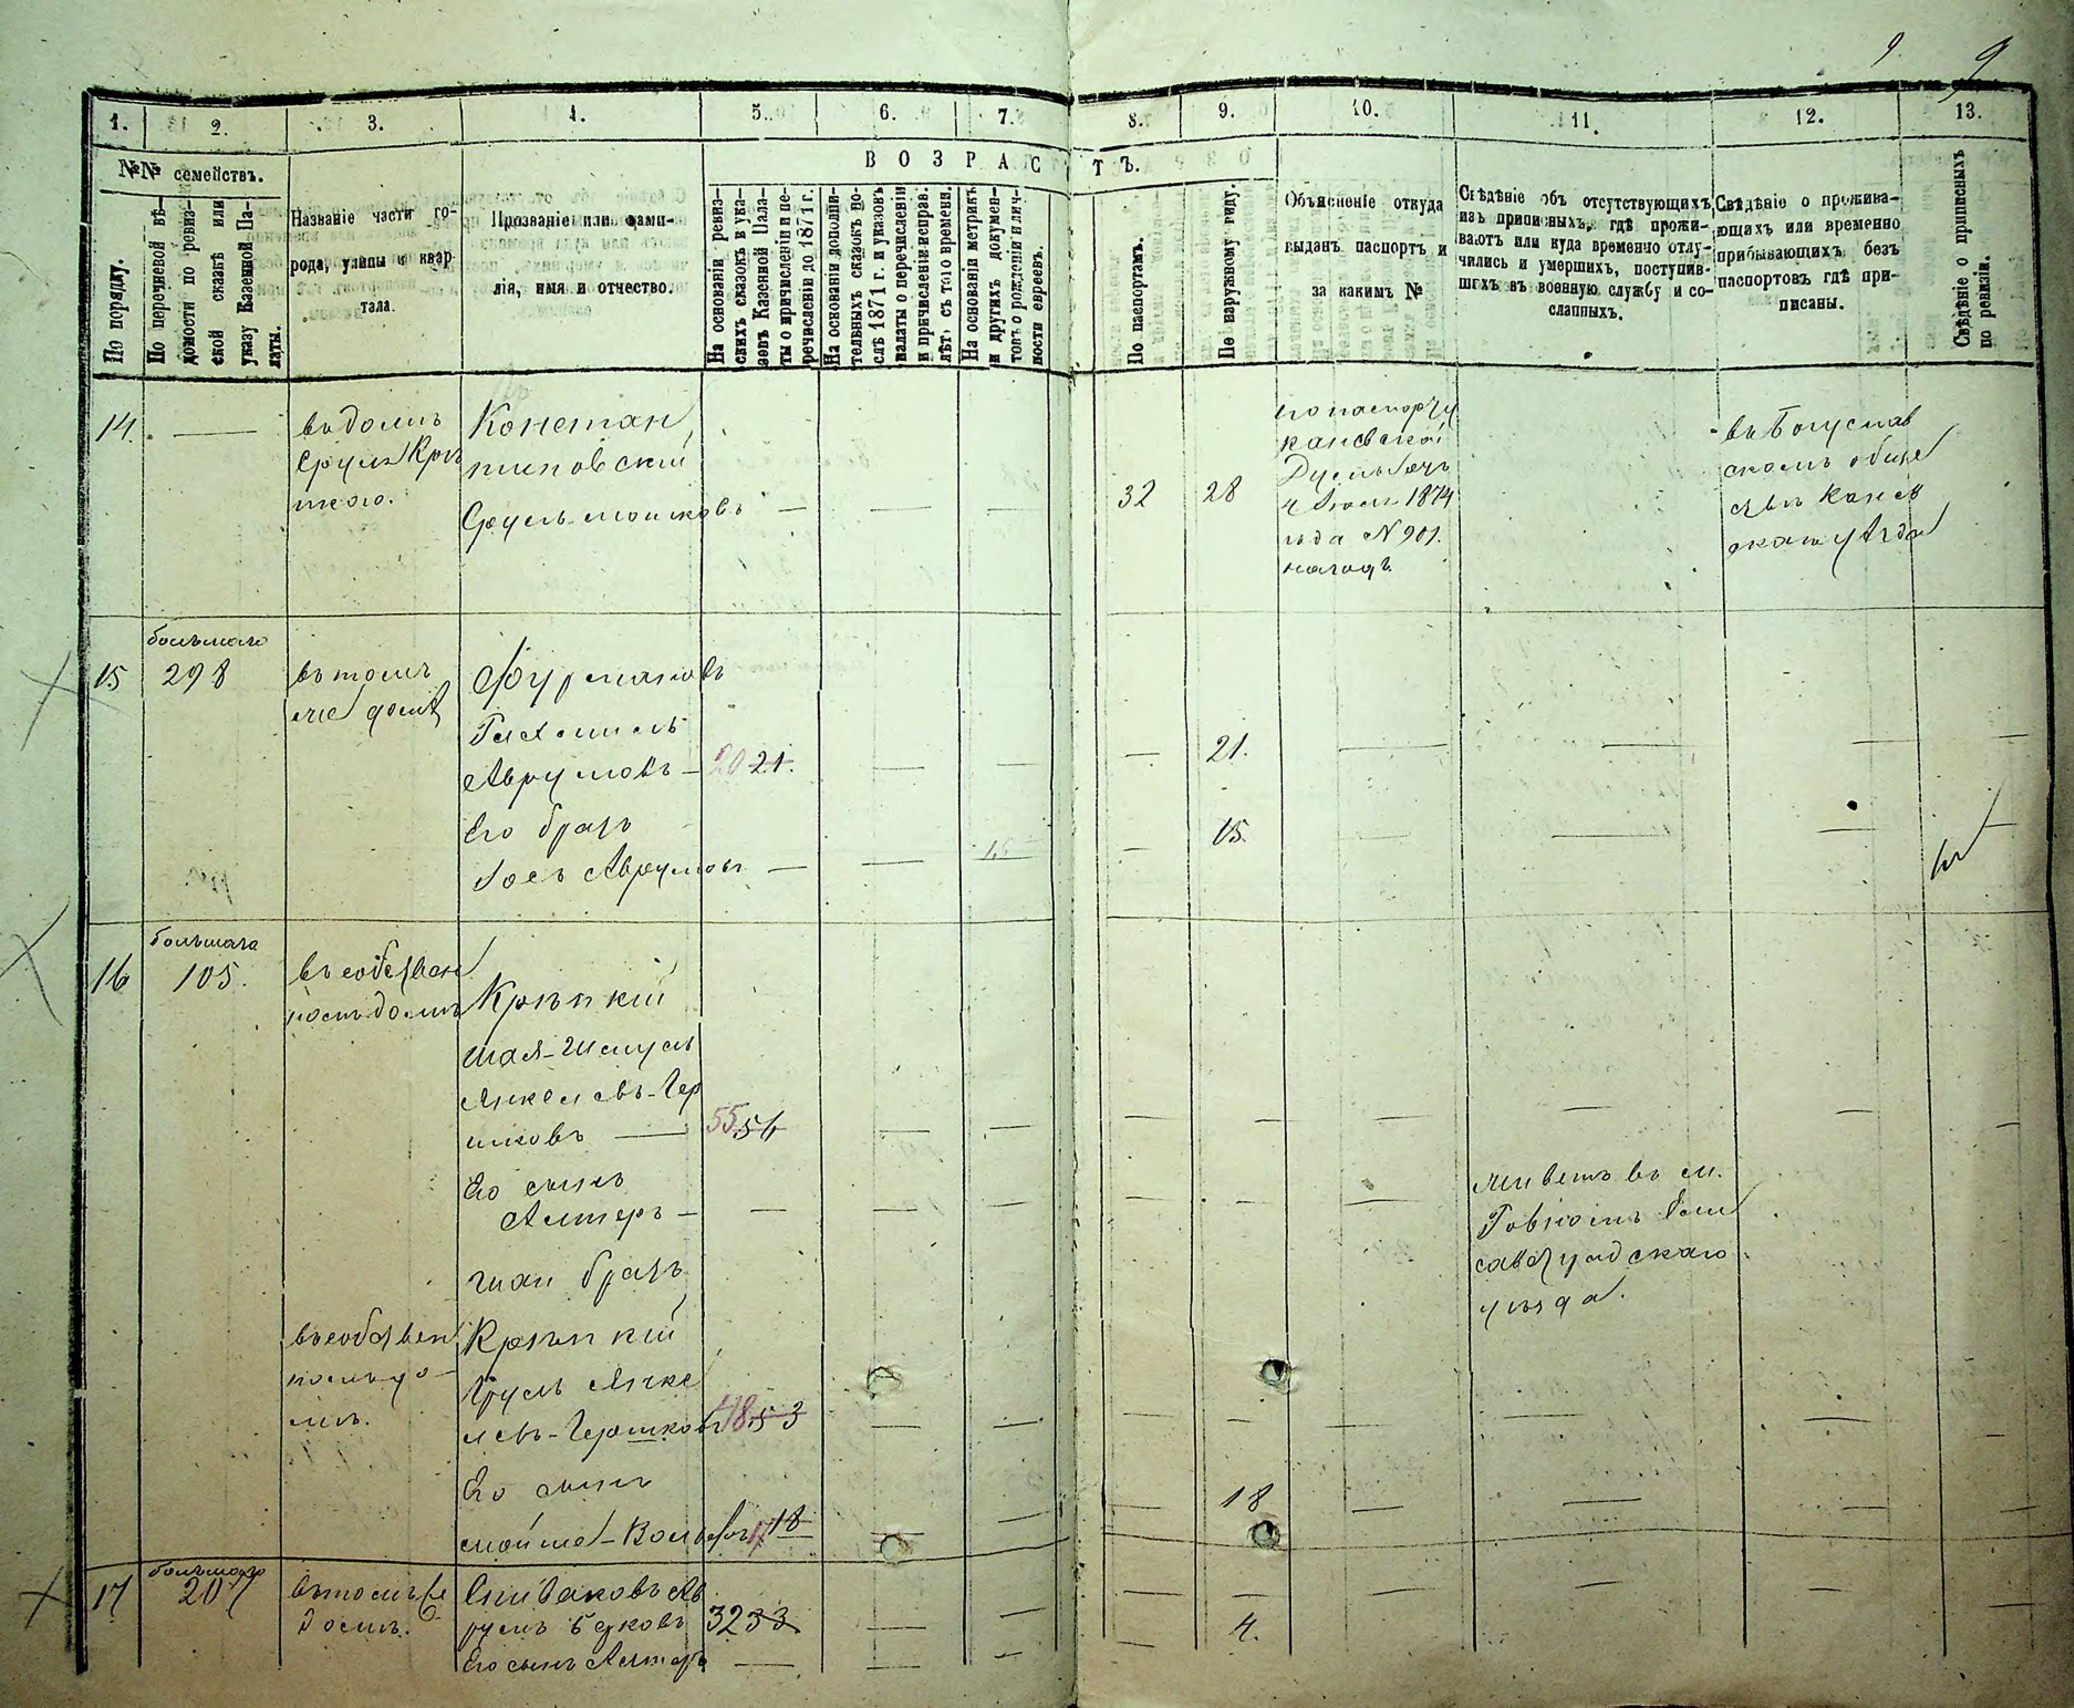 9 9
1. 2. 3. 4. 5. 6. 7. 8. 9. 10. 11. 12. 13.
№№ семействъ.
ВОЗРАСТЪ.
По порядку.
По перечневой вѣ-
домости по ревиз-
ской сказкѣ или
указу Казенной Па-
латы.
Названіе части го-
рода, улицы и квар-
тала.
Прозваніе или фами-
лія, имя и отчество.
На основаніи ревиз-
скихъ сказокъ и ука-
зовъ Казенной Пала-
ты о причисленіи и пе-
речисленіи до 1871 г.
На основаніи дополни-
тельныхъ сказокъ по-
слѣ 1871 г. и указовъ
палаты о перечисленіи
и причисленіи исправ.
лѣтъ съ того времени.
На основаніи метрикъ
и другихъ докумен-
товъ о рожденіи и лич-
ности евреевъ.
По паспортамъ.
По наружному виду.
Объясненіе откуда
выданъ паспортъ и
за какимъ №
Свѣдѣніе объ отсутствующихъ
изъ приписныхъ, гдѣ прожи-
ваютъ или куда временно отлу-
чились и умершихъ, поступив-
шихъ въ военную службу и со-
сланныхъ.
Свѣдѣніе о прожива-
ющихъ или временно
прибывающихъ безъ
паспортовъ гдѣ при-
писаны.
Свѣдѣніе о приписныхъ
по ревизіи.
14. —
въ домѣ
Сруля Крѣ
пкого.
Констан
тиновскій
Сруль Мошковъ — — — 32 28
по паспорту
каневской
Думы
1874
года N 901.
на годъ
въ Богуслав
скомъ обще
ствѣ Канев
скаго уѣзда
большаго
15 298
въ томъ
же домѣ
Фурмановъ
Рахмиль
Аврумовъ — 20 21. — — — 21. — — — —
Его братъ
Іось Аврумовъ — — 15 — 15. — — — —
большаго
16 105.
въ собствен
номъ домѣ
Крѣпкій
Шая-Шмуль
Янкелевъ-Гер
шковъ — 55 56 — — — — — — — —
Его сынъ
Алтеръ — — — — — — —
живетъ въ м.
Ровномъ Елис
саветградскаго
уѣзда.
Шаи братъ
въ собствен
номъ до-
мѣ.
Крѣпкій
Сруль Янке
левъ-Гершковъ 48 53 — — — — — — — —
Его сынъ
Мойше-Вольфъ 17 18 — — — 18 — — — —
большаго
17 207
въ томъ же
домѣ.
Спиваковъ Ав
румъ Берковъ 32 33 — — — — — — — —
Его сынъ Алтеръ — — — — 4.